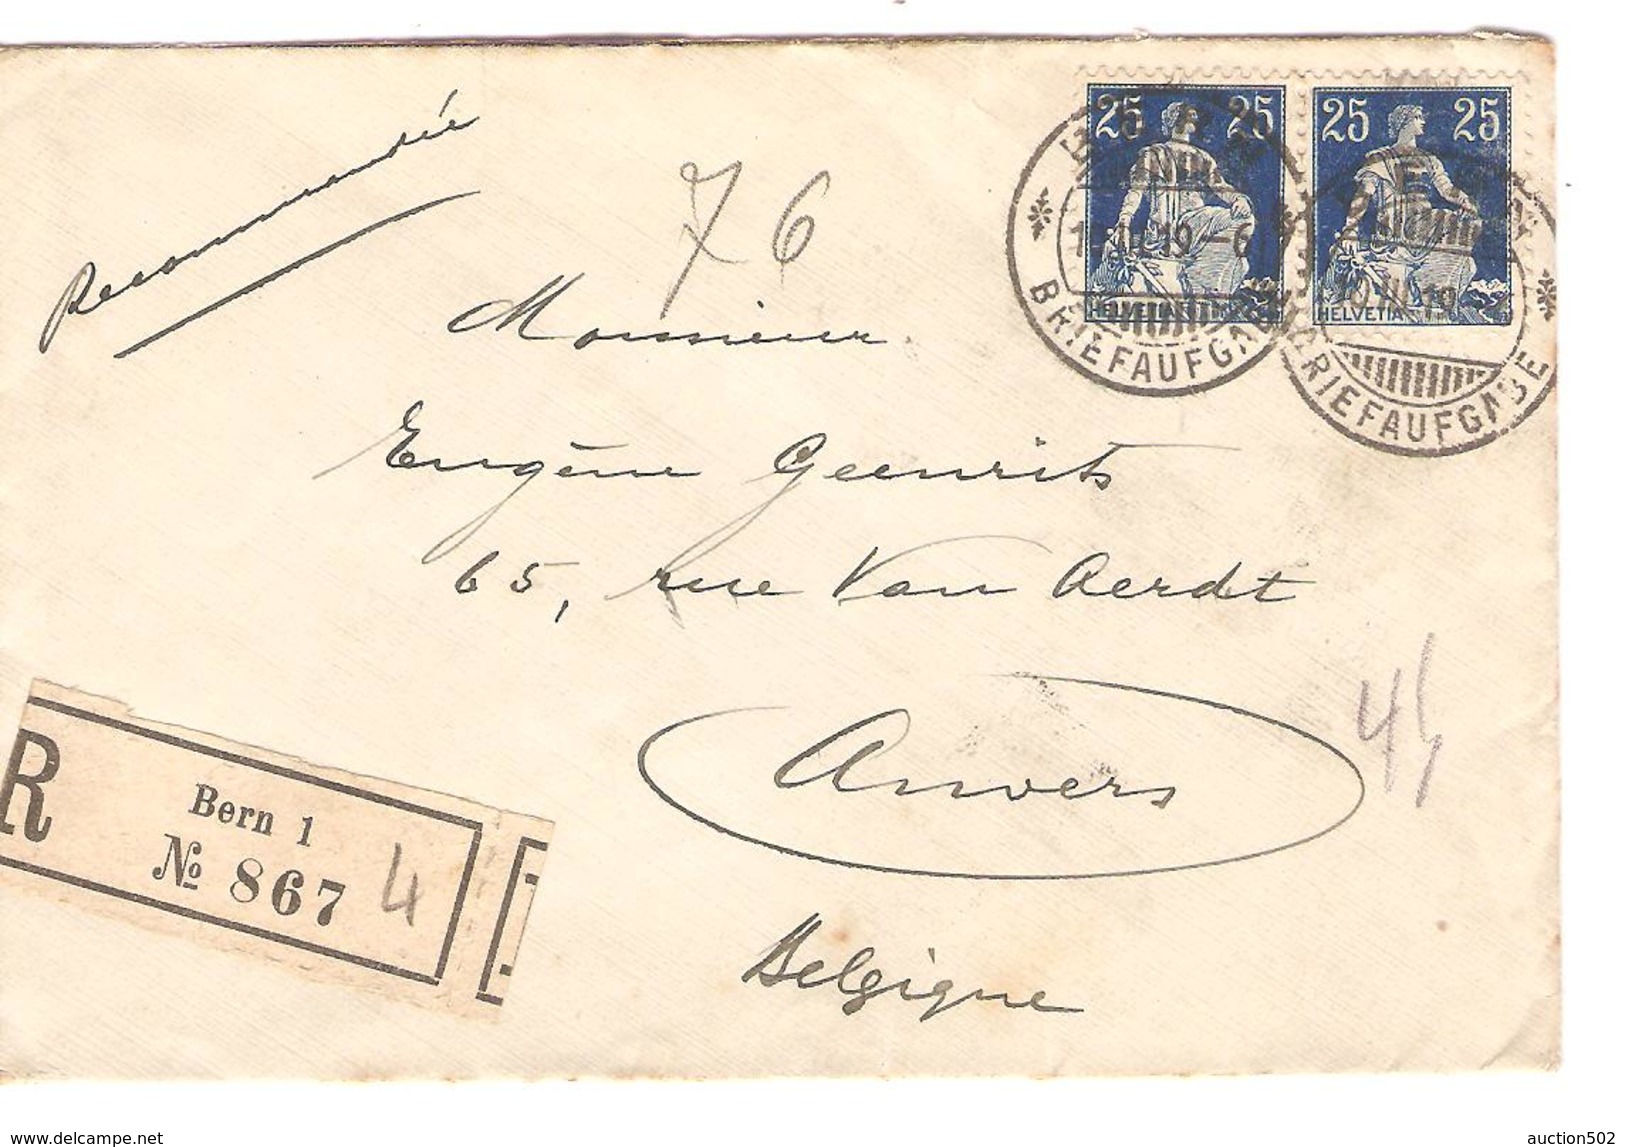 Recommandée
76
25 25
25 25
HELVETIA
HELVETIA
BRIEFAUFGABE
BRIEFAUFGABE
Monsieur
Eugène Geenrits
65, rue Van Aerdt
Anvers
Belgique
R
Bern 1
№ 867
4
delcampe.net
auction502